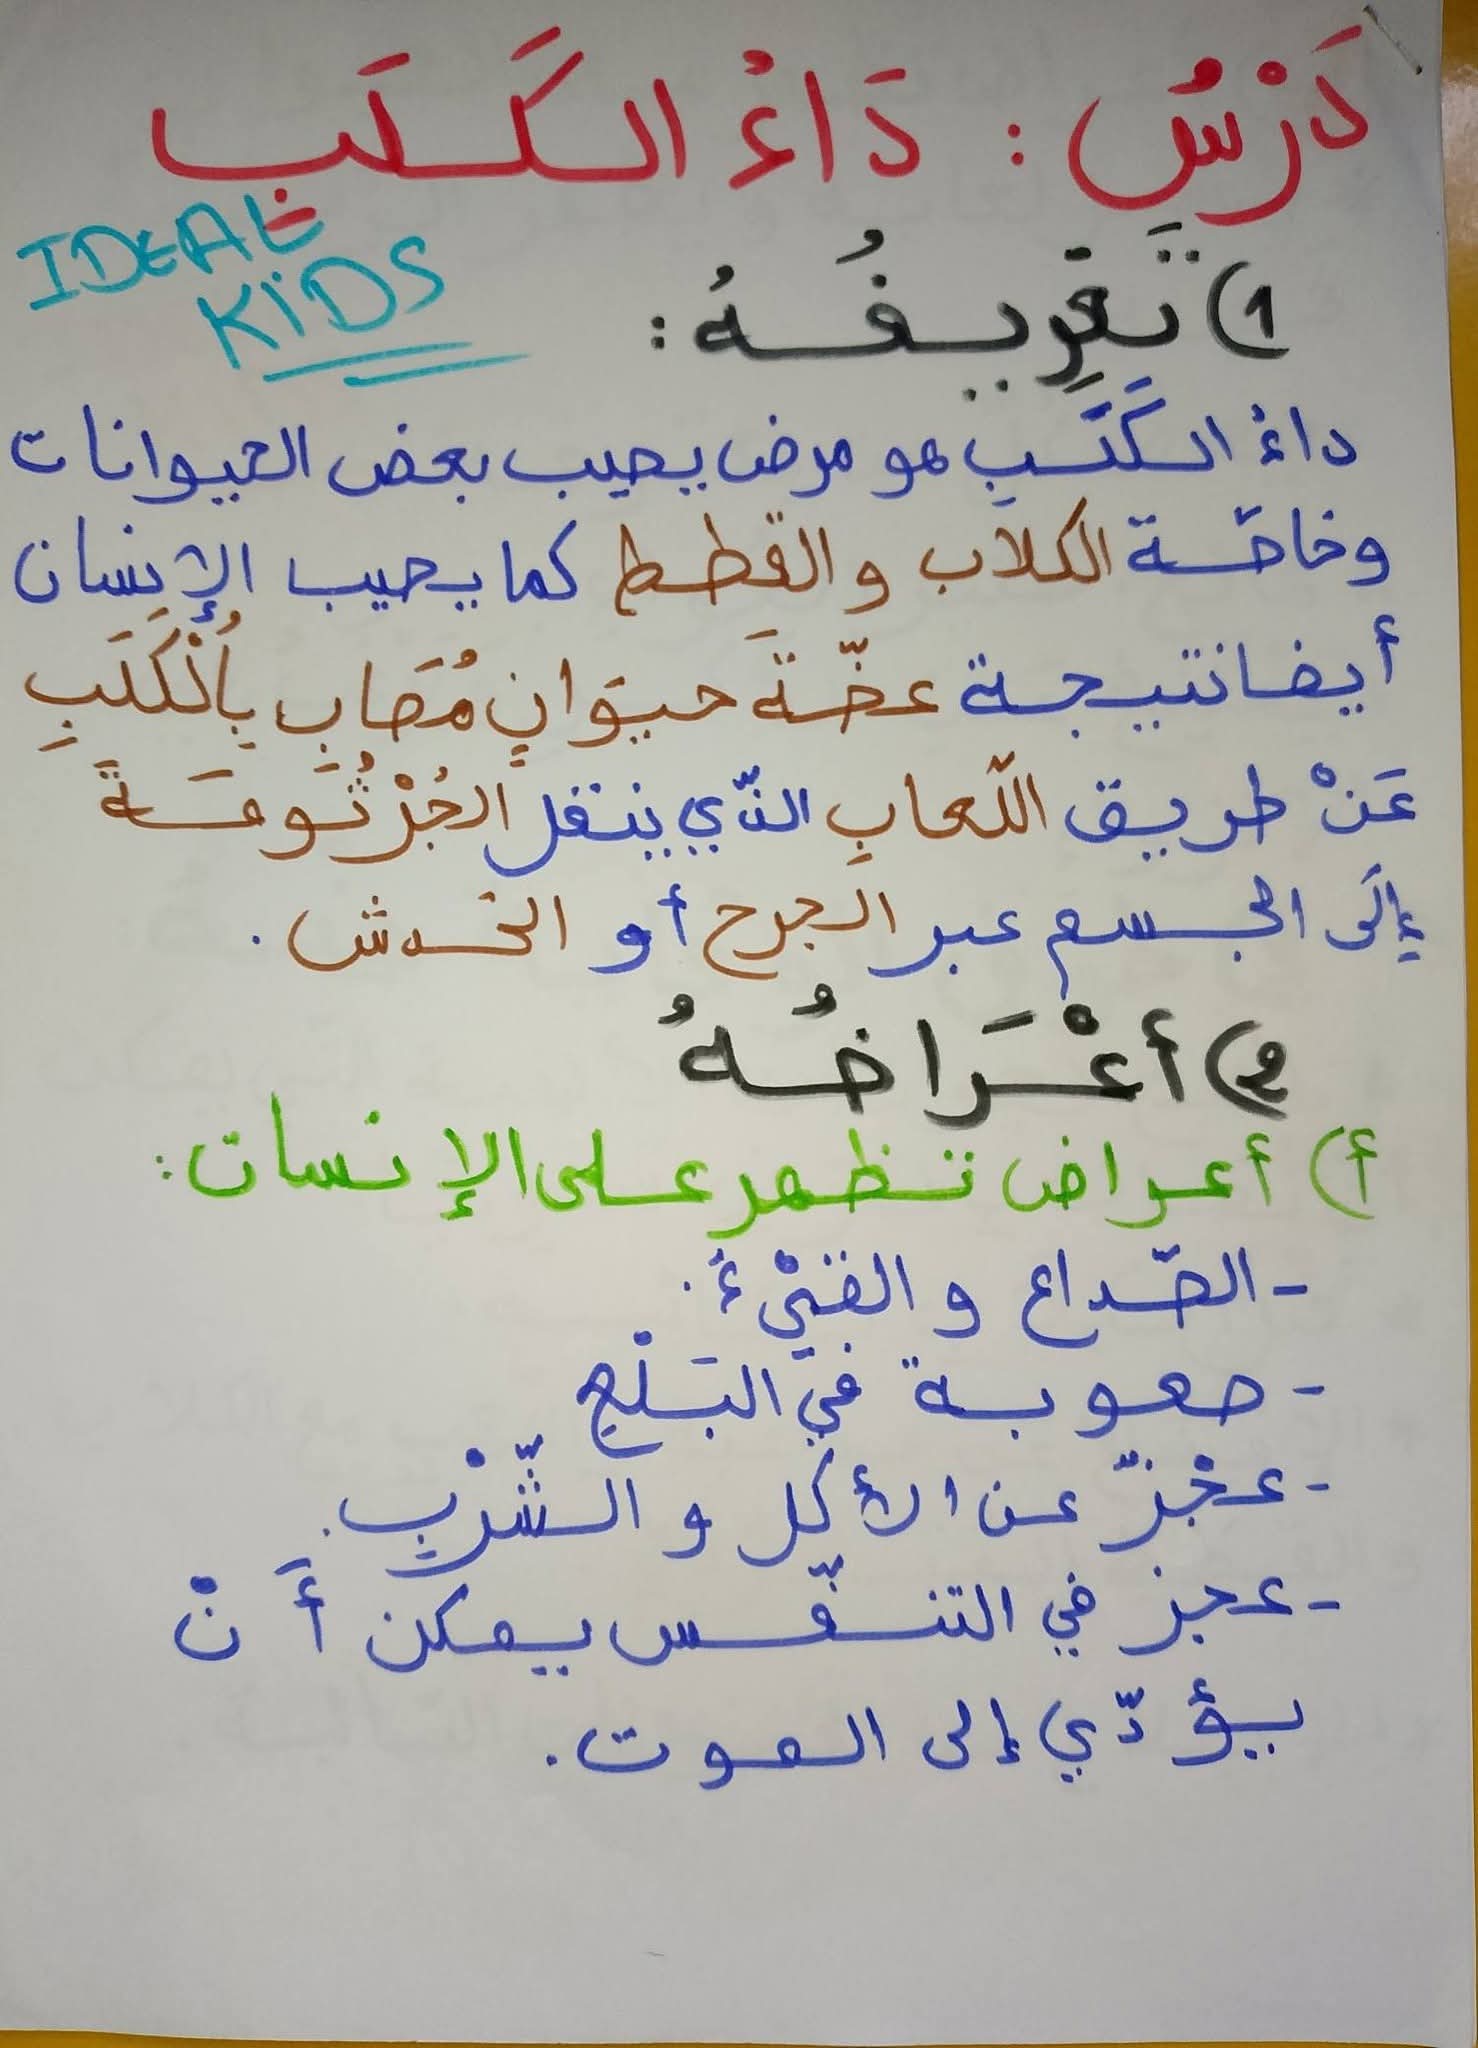 دَرْسُ : دَاءُ الكَلَبِ
IDEAL
KiDS
1) تَعْرِيفُهُ :
داءُ الكَلَبِ هو مرض يصيب بعض الحيوانات
وخاصّة الكلاب والقطط كما يصيب الإنسان
أيضا نتيجة عضّة حيوانٍ مُصَابٍ بِالْكَلَبِ
عَنْ طريق اللّعابِ الذّي ينقل الجُرْثُومَةَ
إلَى الجسم عبر الجرح أو الخدش .
2) أعْرَاضُهُ
أ) أعراض تظهر على الإنسان :
- الصّداع والقَيْءُ .
- صعوبة في البَلْعِ
- عجْزٌ عن الأكل و الشّرْبِ .
- عجز في التنفّس يمكن أَنْ
يؤدّي إلى الموت .